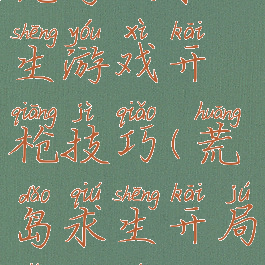 shēng yóu xì kāi
生游戏开
qiāng jì qiǎo huāng
枪技巧(荒
dǎo qiú shēng kāi jú
岛求生开局